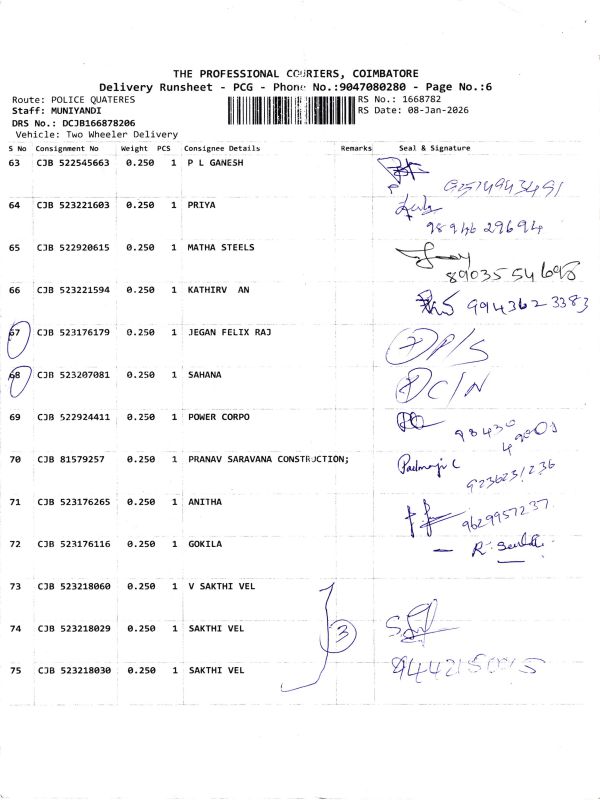 THE PROFESSIONAL COURIERS, COIMBATORE
Delivery Runsheet - PCG - Phone No.:9047080280 - Page No.:6
Route: POLICE QUATERES
RS No.: 1668782
Staff: MUNIYANDI
RS Date: 08-Jan-2026
DRS No.: DCJB166878206
Vehicle: Two Wheeler Delivery
S No Consignment No Weight PCS Consignee Details Remarks Seal & Signature
63 CJB 522545663 0.250 1 P L GANESH
64 CJB 523221603 0.250 1 PRIYA
98946 29694
65 CJB 522920615 0.250 1 MATHA STEELS
66 CJB 523221594 0.250 1 KATHIRV AN 9943623383
67 CJB 523176179 0.250 1 JEGAN FELIX RAJ 7 P/S
68 CJB 523207081 0.250 1 SAHANA 8 C/N
69 CJB 522924411 0.250 1 POWER CORPO
98430
70 CJB 81579257 0.250 1 PRANAV SARAVANA CONSTRUCTION;
9236231236
71 CJB 523176265 0.250 1 ANITHA 9629957237
72 CJB 523176116 0.250 1 GOKILA
73 CJB 523218060 0.250 1 V SAKTHI VEL
74 CJB 523218029 0.250 1 SAKTHI VEL 3
75 CJB 523218030 0.250 1 SAKTHI VEL